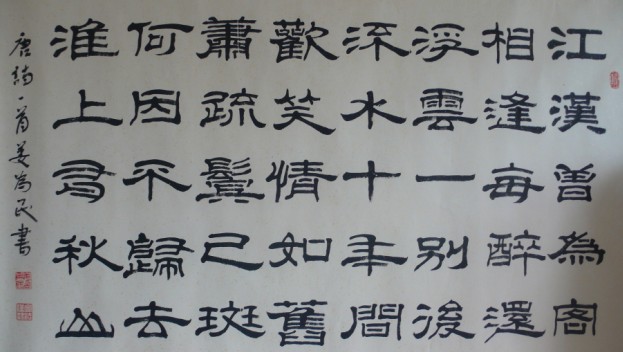 江漢曾為客
相逢每醉還
浮雲一別後
流水十年間
歡笑情如舊
蕭疏鬢已斑
何因不歸去
淮上有秋山
唐詩一首姜民書